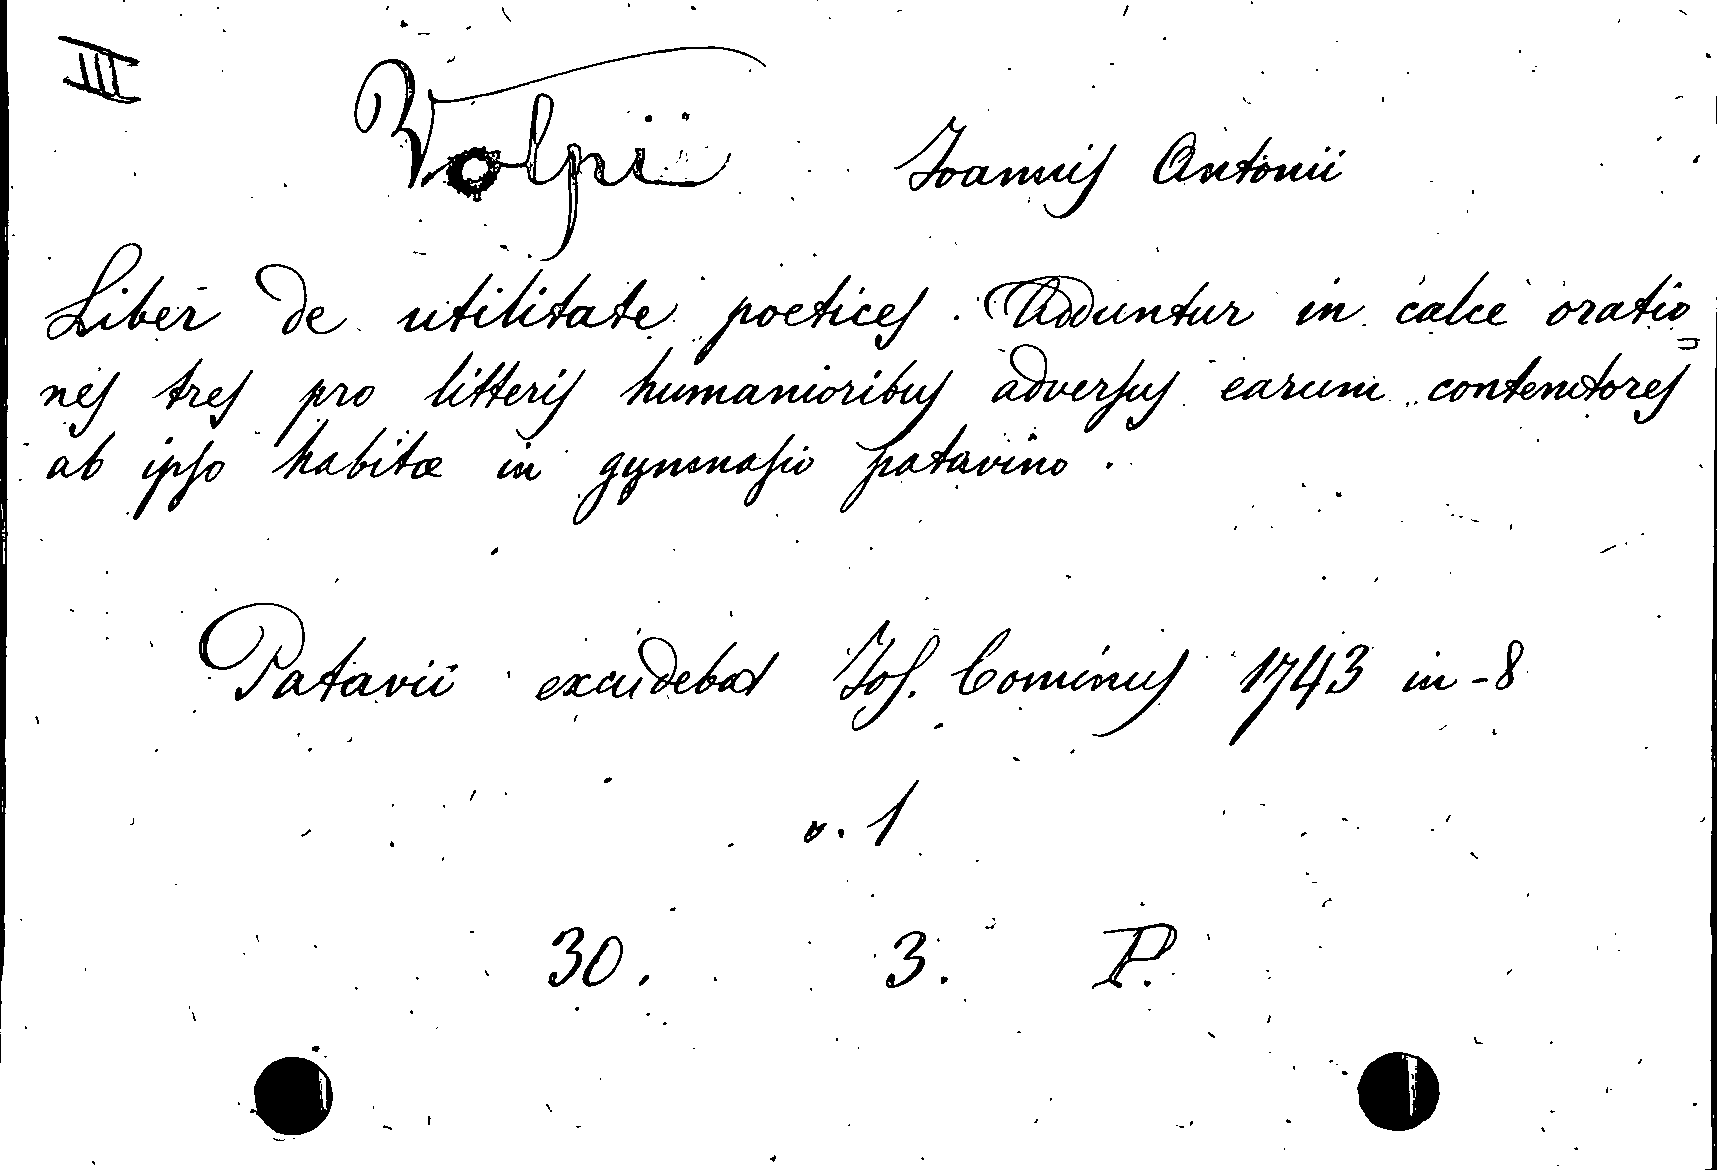 III
Volpii Joannis Antonii
Liber de utilitate poetices. Adduntur in calce oratio
nes tres pro litteris humanioribus adversus earum contemtores
ab ipso habitæ in gymnasio patavino.
Patavii excudebat Jos. Cominus 1743 in-8
v. 1
30. 3. P.